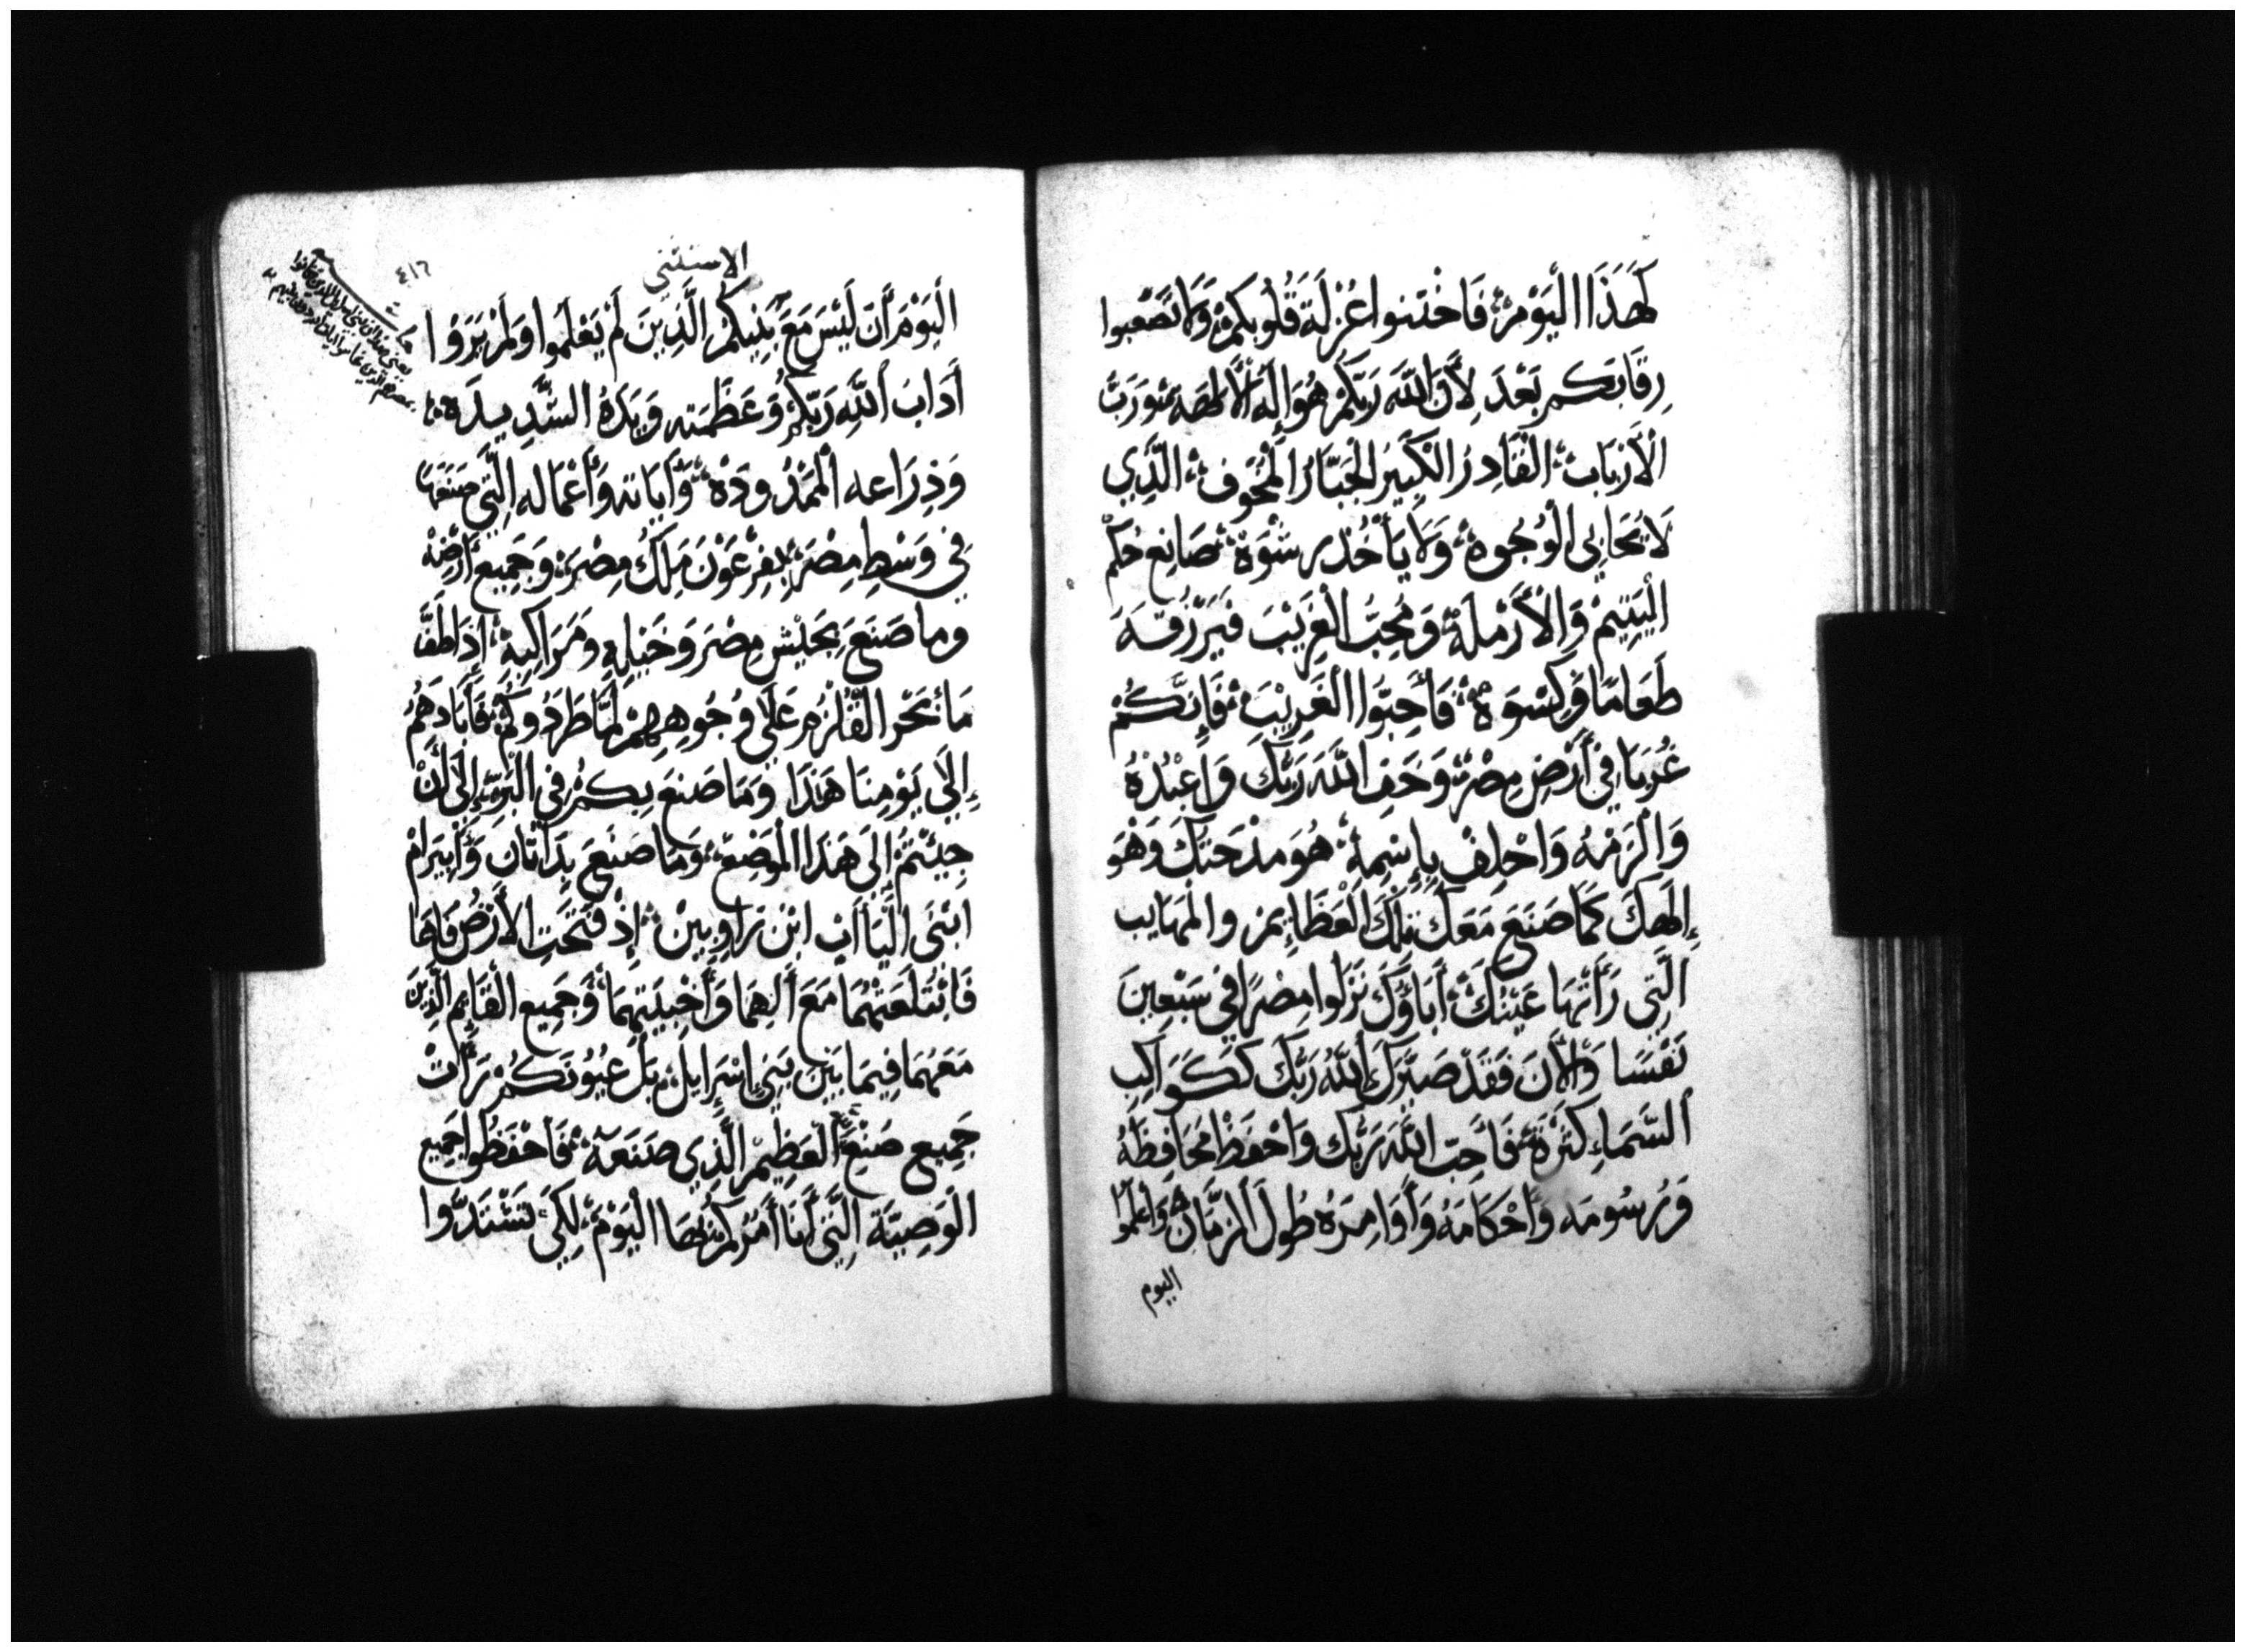 كَهَذَا الْيَوْمِ فَاخْتنوا عُزْلَةَ قُلُوبكمْ وَلَا تَصْعبوا
رِقَابَكم بَعْدَ لِأَنَّ اللَّهَ رَبَّكُمْ هُوَ إِلَهُ الْأَلهه وَرَبُّ
الْأَرْبَابِ الْقَادِرُ الْكَبِيرُ الْجَبَّارُ الْمَخُوف الَّذِي
لَا يُحَابِي الْوُجُوه وَلَا يَأْخُذ رِشْوَة صَانِع حُكْم
الْيَتِيمْ وَالْأَرْمَلَة وَمُحِبُّ الْغَرِيْبَ فَيَرْزُقهَ
طَعَامًا وَكِسْوَة فَأَحِبُّوا الغَرِيْبَ فَإِنَّكُمْ
غُرَبَا فِي أَرْضِ مِصْرَ وَخَفِ اللَّهَ رَبَّكَ وَاعْبُدْهُ
وَالْزَمْهُ وَاحْلِفْ بِإِسْمِهِ هُوَ مدْحَتكَ وَهْوَ
إِلَهكَ كَمَا صَنَعَ مَعَكَ تِلْكَ الْعَظَايِمَ والْمَهَايِب
الَّتِي رَأَتْهَا عَيْنُكَ أَبَاؤُكَ نَزَلُوا مِصْرًا فِي سَبْعِينَ
نَفْسًا وَالْأَنَ فَقَدْ صَيَّرَكَ اللَّهُ رَبُّكَ كَكَوَاكِب
السَّمَاءِ كَثْرَةً فَأَحِبَّ اللَّهَ رَبَّكَ وَاحْفَظْ مَحَافِظَهُ
وَرُسُومَه وَأَحْكَامَهُ وَأَوَامِرَهُ طُولَ الزَّمَان وَاعْلَمُوا
اليوم
الاستثنى
٤١٦
الْيَوْمَ أَنَ لَيْسَ مَعَ بَنِيكُمْ الَّذِينَ لَمْ يَعْلَمُوا وَلَمْ يَرَوْا
أَدَابَ اللَّهِ رَبِّكُمْ وَعَظَمَته وَيَدَهُ الشَّدِيدَه
وَذِرَاعه الْمَمْدُودَةْ وَآيَاته وَأَعْمَاله الَّتِي صَنَعَهَا
فِي وَسْطِ مِصْرَ لِفِرْعَوْنَ مَلِكُ مِصْرَ وَجَمِيعَ أَرْضِهْ
وما صَنَعَ بِجَيْشِ مِصْرَ وَخَيْلِهِ وَمَرَاكِبِهْ إِذ أَطَفَّ
مَاءَ بَحْرِ الْقُلْزُمِ عَلَى وُجُوهِهِمْ لَمَّا طَرَدُوكُمْ فَأَبَادَهُمْ
إِلَى يَوْمِنَا هَذَا وَمَا صَنَعَ بِكمْ فِي الْبَرِّيَّة إِلَى أَنْ
جِيْتُمْ إِلَى هَذَا الْمَوْضِعْ وَمَا صَنَعَ بِدَاثَان وَأَبِيَرامْ
ابْنَي أَلْيَاأَب ابْن رَاوِبِيْنْ إِذْ فَتَحَتِ الْأَرْضُ فَاهَا
فَابْتَلَعَتْهُمَا مَعَ أَلِهِمَا وَأَخْبِيَتِهِمَا وَجَمِيع الْقَائِم الَّذِينَ
مَعَهُمَا فِيمَا بَيْنَ بَنِي إِسْرَايِلْ بَلْ عُيُونَكُمْ رَأَتْ
جَمِيع صَنْعِ الْعَظِيمْ الَّذِي صَنَعَهْ فَاحْفَظُوا جَمِيع
الوَصِيَّةَ الَّتِي أَنَا أَمُرُكُمْ بِهَا الْيَوْمَ لِكَي تَشْتَدُّوا